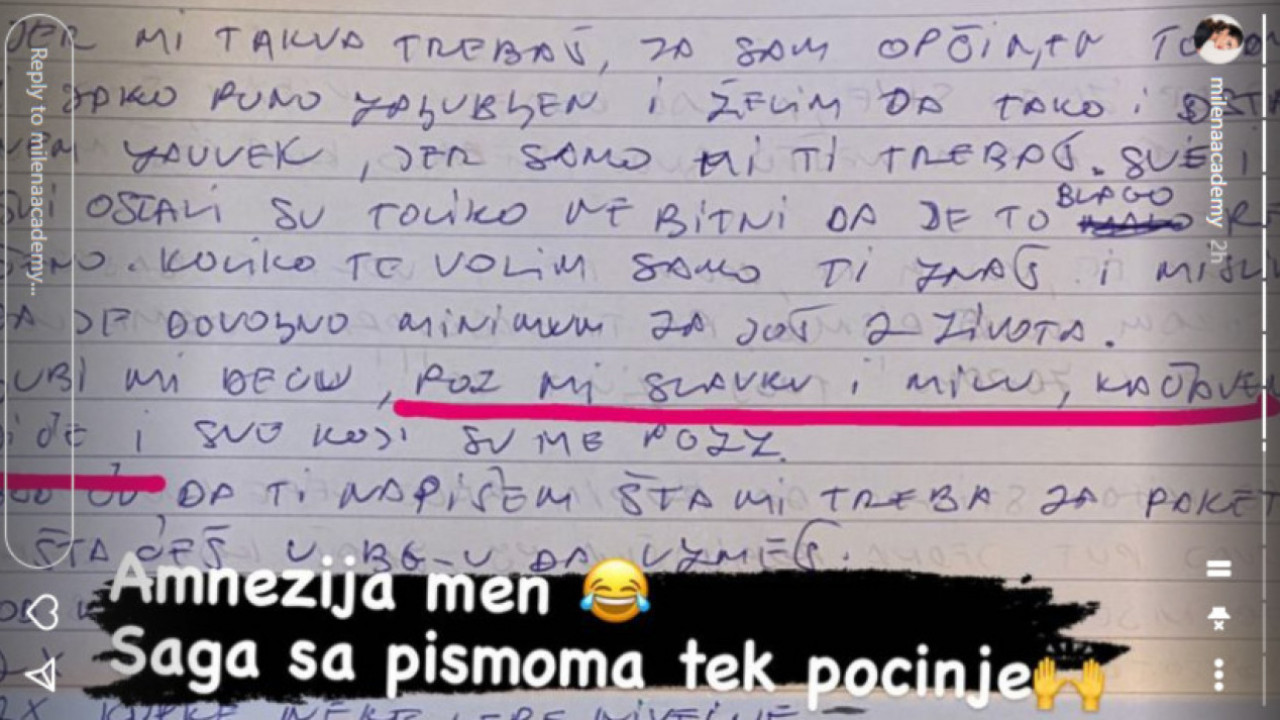 JER MI TAKVA TREBAŠ, JA SAM OPČINJEN TO
JAKO PUNO ZALJUBLJEN I ŽELIM DA TAKO I
ZAUVEK, JER SAMO MI TI TREBAŠ. SVE I
SVI OSTALI SU TOLIKO NE BITNI DA JE TO BLAGO
KOLIKO TE VOLIM SAMO TI ZNAŠ I
DA JE DOVOLJNO MINIMUM ZA JOŠ 2 ŽIVOTA.
MI DECU, POZ MI SLAVKU I MILU,
I SVE KOJI SU ME POZZ.
DA TI NAPIŠEM ŠTA MI TREBA ZA PAKET
ŠTA ĆEŠ U BG-U DA UZMEŠ.
Amnezija men 😂
Saga sa pismoma tek pocinje🙌
Reply to milenaacademy...
milenaacademy 2h